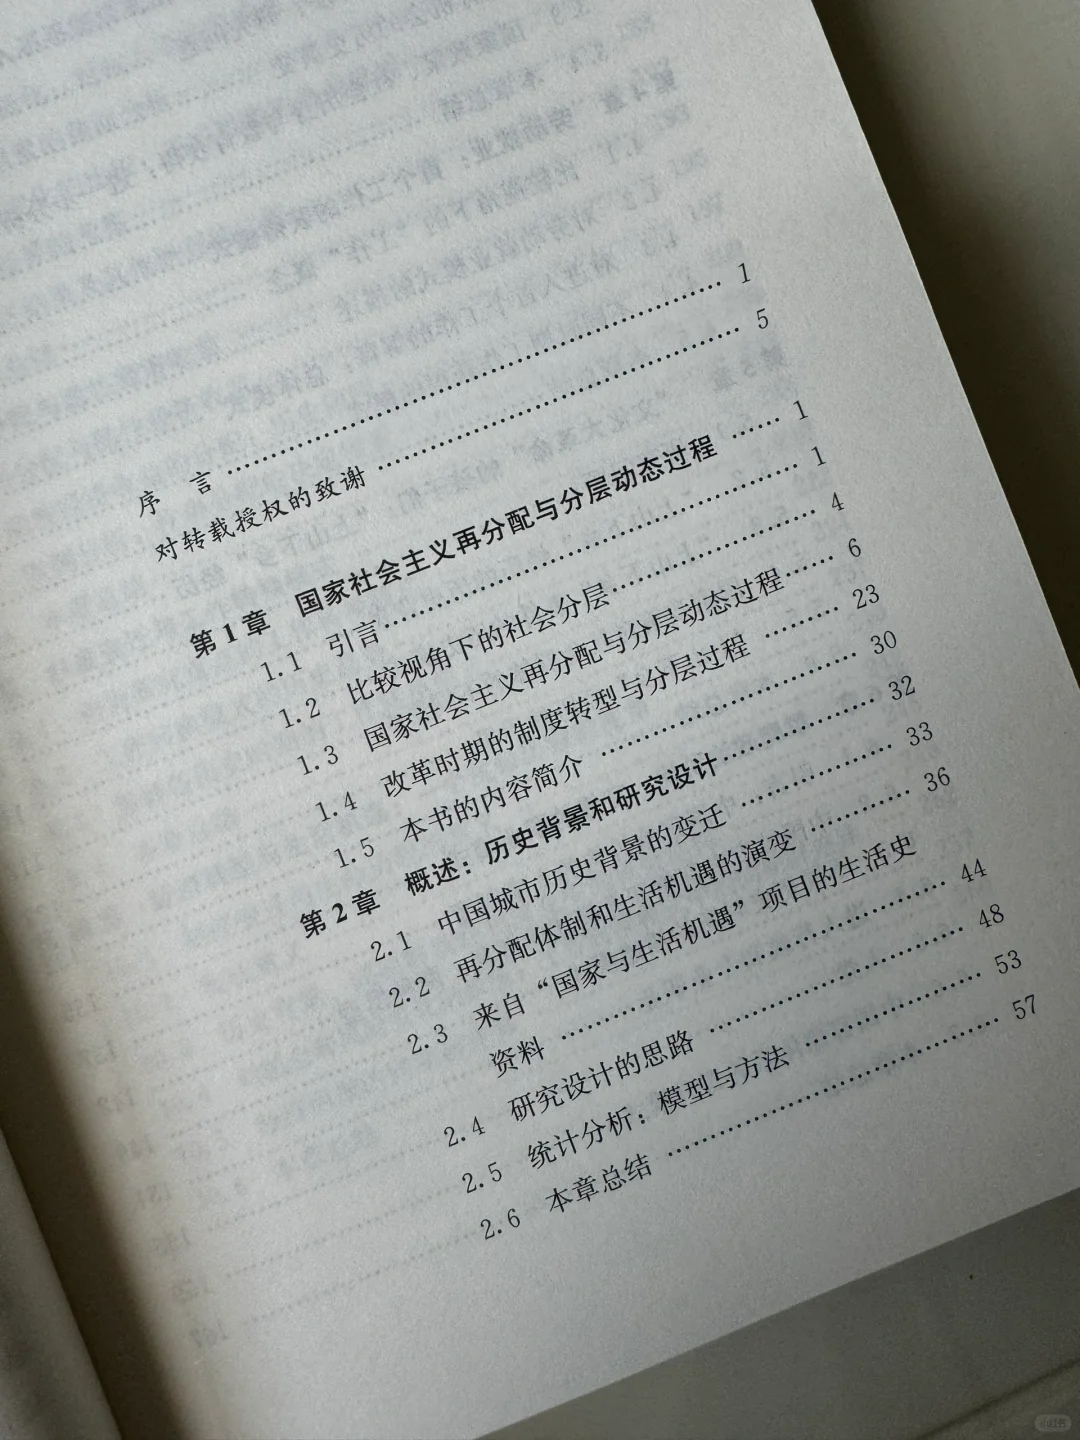 序 言 …… 1
对转载授权的致谢 …… 5
第1章 国家社会主义再分配与分层动态过程 …… 1
1.1 引言 …… 1
1.2 比较视角下的社会分层 …… 4
1.3 国家社会主义再分配与分层动态过程 …… 6
1.4 改革时期的制度转型与分层过程 …… 23
1.5 本书的内容简介 …… 30
第2章 概述：历史背景和研究设计 …… 32
2.1 中国城市历史背景的变迁 …… 33
2.2 再分配体制和生活机遇的演变 …… 36
2.3 来自“国家与生活机遇”项目的生活史
资料 …… 44
2.4 研究设计的思路 …… 48
2.5 统计分析：模型与方法 …… 53
2.6 本章总结 …… 57